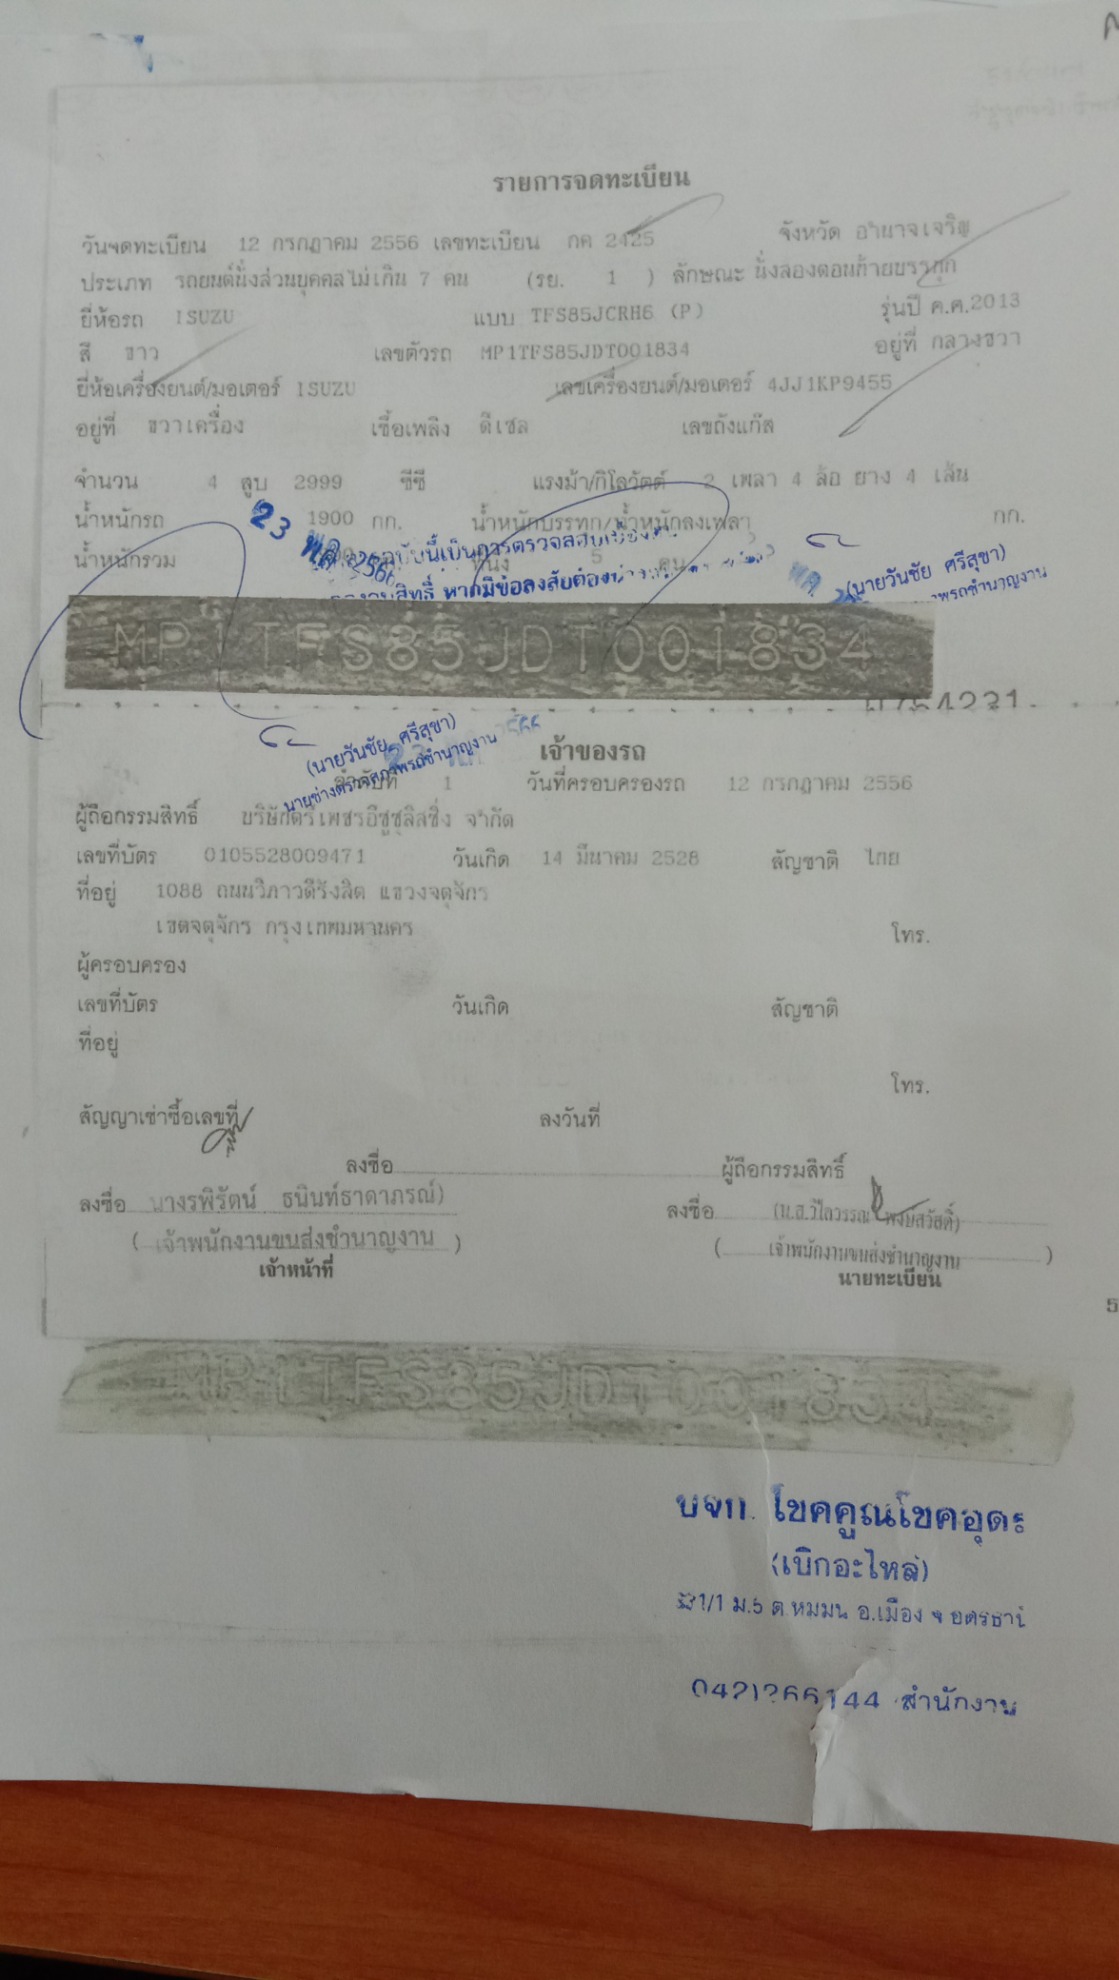 รายการจดทะเบียน
วันจดทะเบียน 12 กรกฎาคม 2556 เลขทะเบียน กค 2425 จังหวัด อำนาจเจริญ
ประเภท รถยนต์นั่งส่วนบุคคลไม่เกิน 7 คน (รย. 1 ) ลักษณะ นั่งสองตอนท้ายบรรทุก
ยี่ห้อรถ ISUZU แบบ TFS85JCRH6 (P) รุ่นปี ค.ศ.2013
สี ขาว เลขตัวรถ MP1TFS85JDT001834 อยู่ที่ กลางขวา
ยี่ห้อเครื่องยนต์/มอเตอร์ ISUZU เลขเครื่องยนต์/มอเตอร์ 4JJ1KP9455
อยู่ที่ ขวาเครื่อง เชื้อเพลิง ดีเซล เลขถังแก๊ส
จำนวน 4 สูบ 2999 ซีซี แรงม้า/กิโลวัตต์ 2 เพลา 4 ล้อ ยาง 4 เส้น
น้ำหนักรถ 1900 กก. น้ำหนักบรรทุก/น้ำหนักลงเพลา กก.
น้ำหนักรวม ที่นั่ง 5 คน
23 พ.ค. 2566
ฉบับนี้เป็นการตรวจสอบ
สิทธิ์ หากมีข้อสงสัยต้อง
(นายวันชัย ศรีสุขา)
MP1TFS85JDT001834
(นายวันชัย ศรีสุขา)
นายช่างตรวจสภาพรถชำนาญงาน
เจ้าของรถ
ลำดับที่ 1 วันที่ครอบครองรถ 12 กรกฎาคม 2556
ผู้ถือกรรมสิทธิ์ บริษัทตรีเพชรอีซูซุลิสซิ่ง จำกัด
เลขที่บัตร 0105528009471 วันเกิด 14 มีนาคม 2528 สัญชาติ ไทย
ที่อยู่ 1088 ถนนวิภาวดีรังสิต แขวงจตุจักร
เขตจตุจักร กรุงเทพมหานคร โทร.
ผู้ครอบครอง
เลขที่บัตร วันเกิด สัญชาติ
ที่อยู่
โทร.
สัญญาเช่าซื้อเลขที่ ลงวันที่
ลงชื่อ ผู้ถือกรรมสิทธิ์
ลงชื่อ นางรพิรัตน์ ธนินท์ธาดาภรณ์) ลงชื่อ (น.ส.วิไลวรรณ พงษ์สวัสดิ์)
( เจ้าพนักงานขนส่งชำนาญงาน ) ( เจ้าพนักงานขนส่งชำนาญงาน )
เจ้าหน้าที่ นายทะเบียน
MP1TFS85JDT001834
บจก. โชคคูณโชคอุดร
(เบิกอะไหล่)
1/1 ม.5 ต.หมูม่น อ.เมือง จ อุดรธานี
สำนักงาน